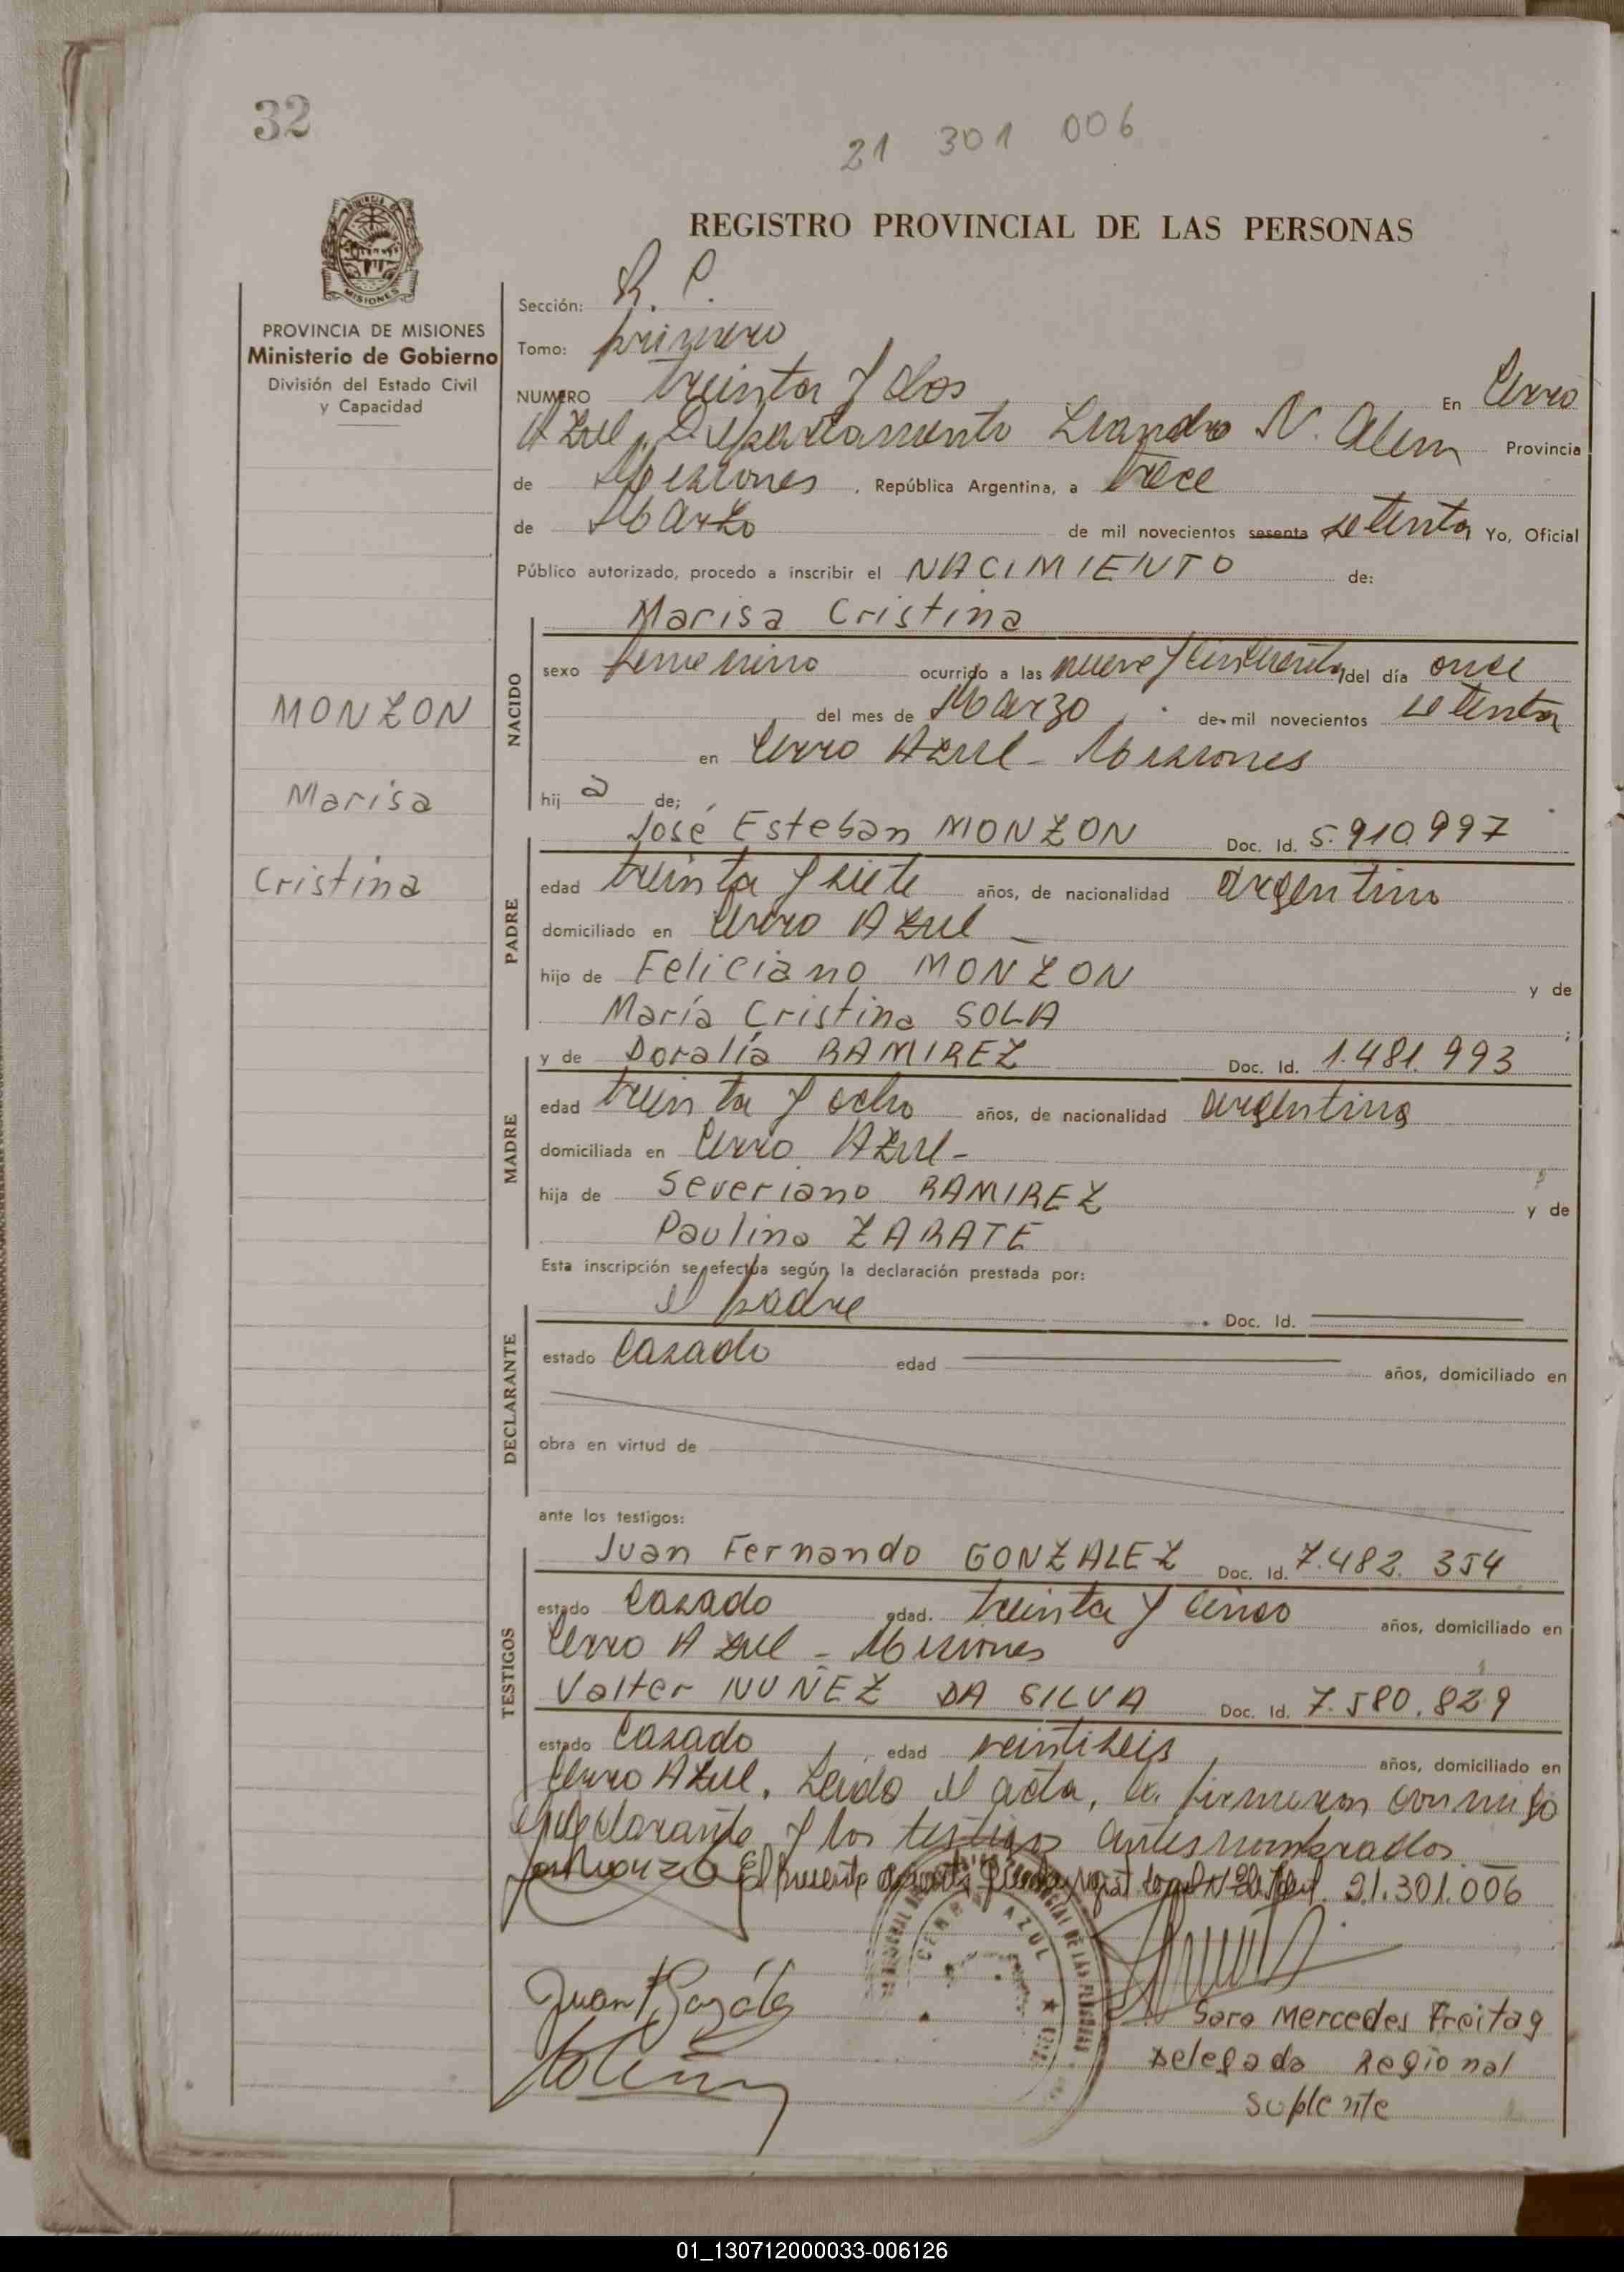 32
21 301 006
REGISTRO PROVINCIAL DE LAS PERSONAS
MISIONES
PROVINCIA DE MISIONES
Ministerio de Gobierno
División del Estado Civil
y Capacidad
MONZON
Marisa
Cristina
Sección: R. C.
Tomo: primero
NUMERO treinta y dos En Cerro
Azul, Departamento Leandro N. Alem Provincia
de Misiones, República Argentina, a trece
de Marzo de mil novecientos sesenta setenta Yo, Oficial
Público autorizado, procedo a inscribir el NACIMIENTO de:
NACIDO
Marisa Cristina
sexo femenino ocurrido a las nueve y cincuenta del día once
del mes de Marzo de mil novecientos setenta
en Cerro Azul - Misiones
hij a de;
PADRE
José Esteban MONZON Doc. Id. 5.910.997
edad treinta y siete años, de nacionalidad argentino
domiciliado en Cerro Azul -
hijo de Feliciano MONZON y de
María Cristina SOLA ;
MADRE
y de Doralía RAMIREZ Doc. Id. 1.481.993
edad treinta y ocho años, de nacionalidad argentina
domiciliada en Cerro Azul -
hija de Severiano RAMIREZ y de
Paulina ZARATE
Esta inscripción se efectúa según la declaración prestada por:
DECLARANTE
el padre Doc. Id.
estado Casado edad años, domiciliado en
obra en virtud de
ante los testigos:
TESTIGOS
Juan Fernando GONZALEZ Doc. Id. 7.482.354
estado Casado edad. treinta y cinco años, domiciliado en
Cerro Azul - Misiones
Valter NUÑEZ DA SILVA Doc. Id. 7.580.829
estado Casado edad veintiseis años, domiciliado en
Cerro Azul. Leida el acta, la firmaron conmigo
el declarante y los testigos antesnombrados.
El presente 21.301.006
CERRO AZUL
Sara Mercedes Freitag
Delegada Regional
Suplente
01_130712000033-006126